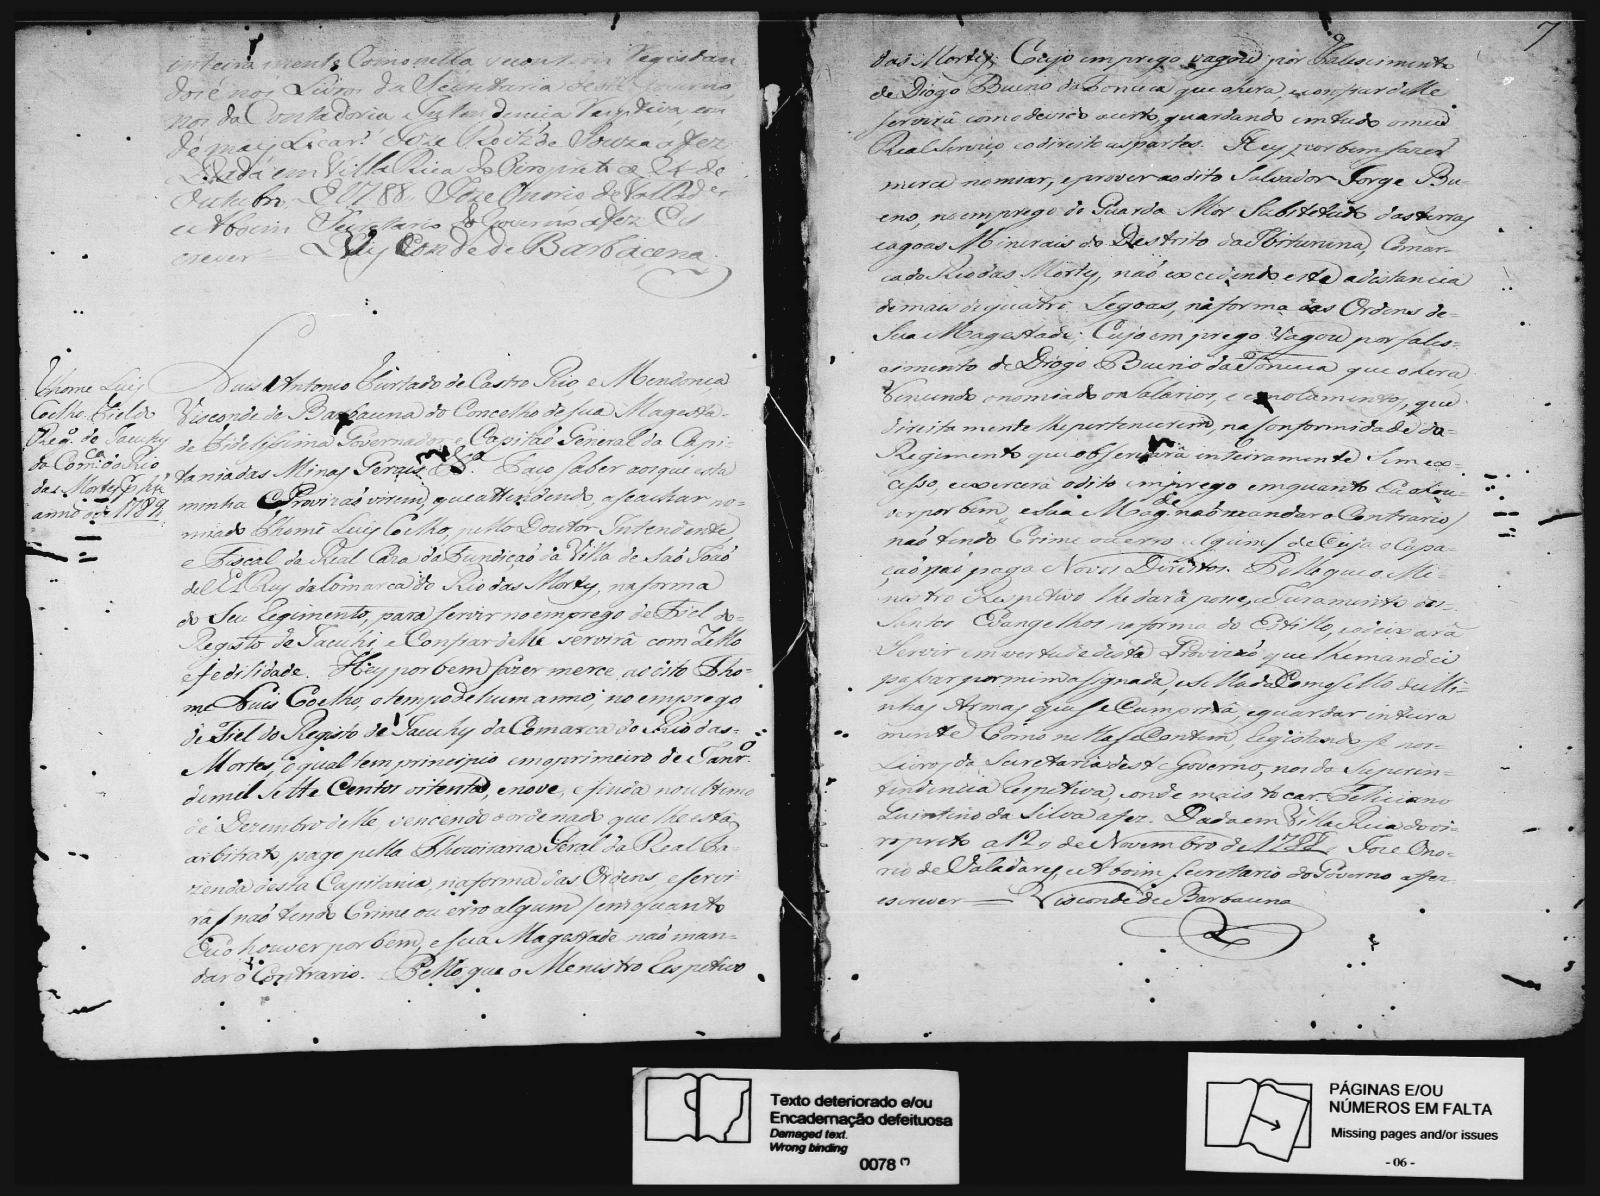 inteiramente como nella se contem Registan
dose nos Livros da Secretaria deste Governo
nos da Contadoria e Intendencia respetiva, eon
de mais tocar. Joze Roiz' de Souza a fez
Dada em Villa Rica do Ouro preto a 24 de
Outubro de 1788, Joze Onorio de Vallada-
e Aboim Secretario do Governo afez Es
crever — Luis Conde de Barbacena
Thome Luis
Coelho. Fiel do
Rego. de Jacuhy
da Comca. do Rio
das Mortes
anno de 1789
Luis Antonio Furtado de Castro Rio e Mendonca
Visconde de Barbacena do Concelho de sua Magesta-
de Fidelissima Governador e Capitaõ General da Capi-
tania das Minas Gerais &a. Faço saber aos que esta
minha Provizaõ virem, que attendendo a se achar no-
miado Thomé Luis Coelho, pello Doutor Intendente,
e Fiscal da Real Caza da Fundiçaõ da Villa de Saõ Joaõ
del Rey da Comarca do Rio das Mortes, na forma
do Seu Regimento, para servir no emprego de Fiel do-
Registo de Jacuhi, e Confiar delle servirá com Zello
e fedilidade. Hey por bem fazer merce ao dito Tho-
me Luis Coelho, o tempo de hum anno, no emprego
de Fiel do Registo de Jacuhy da Comarca do Rio das-
Mortes, o qual tem principio em o primeiro de Janro.
de mil Sette Centos oitenta, e nove, e finda no ultimo
de Dezembro delle vencendo o ordenado que lhe está
arbitrato, pago pella Thezoiraria Geral da Real Fa-
zenda desta Capitania, na forma das Ordens, e servi
rá / naõ tendo Crime ou erro algum / em quanto
Eu o houver por bem, e sua Magestade naõ man-
dar o Contrario. Pello que o Menistro Respetivo
7
das Mortes; Cujo emprego vagou por falescimento
de Diogo Bueno da Fonceca que o hera, e confiar delle
servirá como devido acerto, guardando em tudo o meu
Real Serviço, e o direito as partes. Hey por bem fazer
merce nomiar, e prover ao dito Salvador Jorge Bu-
eno, no emprego de Guarda Mór Substetuto das terras
e agoas Minerais do Destrito da Ibituruna, Comar-
ca do Rio das Mortes, naõ excedendo esta a distancia
de mais de quatro Legoas, na forma das Ordens de-
Sua Magestade; Cujo emprego vagou por fales-
cimento de Diogo Bueno da Fonceca que o hera
vencendo o nomiado os Salarios, e emolumentos, que
direitamente lhe pertencerem, na conformidade do
Regimento que observará inteiramente Sem ex-
cesso, e exercerá o dito emprego em quanto Eu o hou-
ver por bem, e Sua Magde. naõ mandar o Contrario /
naõ tendo Crime ou erro algum / de Cuja o Cupa-
çaõ naõ paga Novos Direitos. Pello que o Mi-
nistro Respetivo lhe dará posse, e Juramento dos-
Santos Evangelhos na forma do Estillo, e o deixará
Servir em vertude desta Provizaõ que lhe mandei
passar por mim asignada, e Sellada Com o Sello de Mi-
nhas Armas que se Cumprirá, e guardar inteira
mente Como nella se Contem, Registando se nos-
Livros da Secretaria deste Governo, nos da Superin-
tendencia Respetiva, e onde mais tocar. Feliciano
Quintino da Silva a fez. Dada em Villa Rica do Oi-
ro preto a 12, de Novembro de 1788, Joze Ono-
rio de Valadares, e Aboim Secretario do Governo a fez
escrever — Visconde de Barbacena
Texto deteriorado e/ou
Encadernação defeituosa
Damaged text.
Wrong binding
0078 (*)
PÁGINAS E/OU
NÚMEROS EM FALTA
Missing pages and/or issues
- 06 -